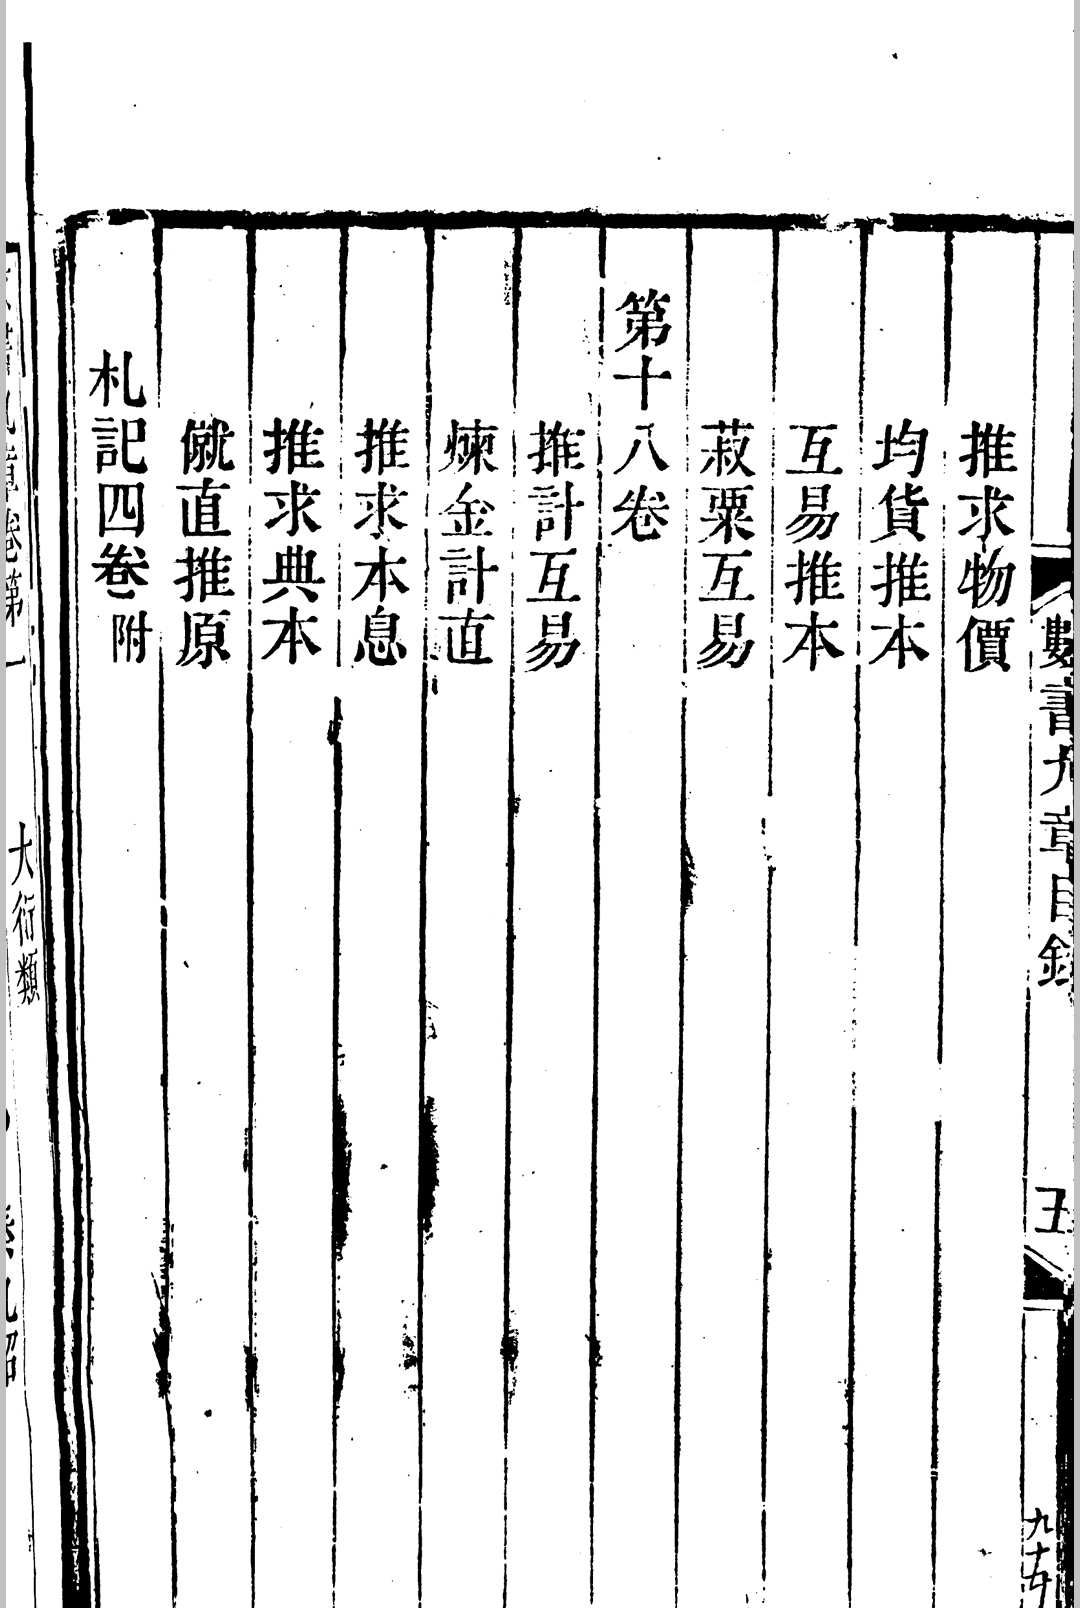 數書九章目錄
五
推求物價
均貨推本
互易推本
菽粟互易
第十八卷
推計互易
煉金計直
推求本息
推求典本
僦直推原
札記四卷附
大衍類